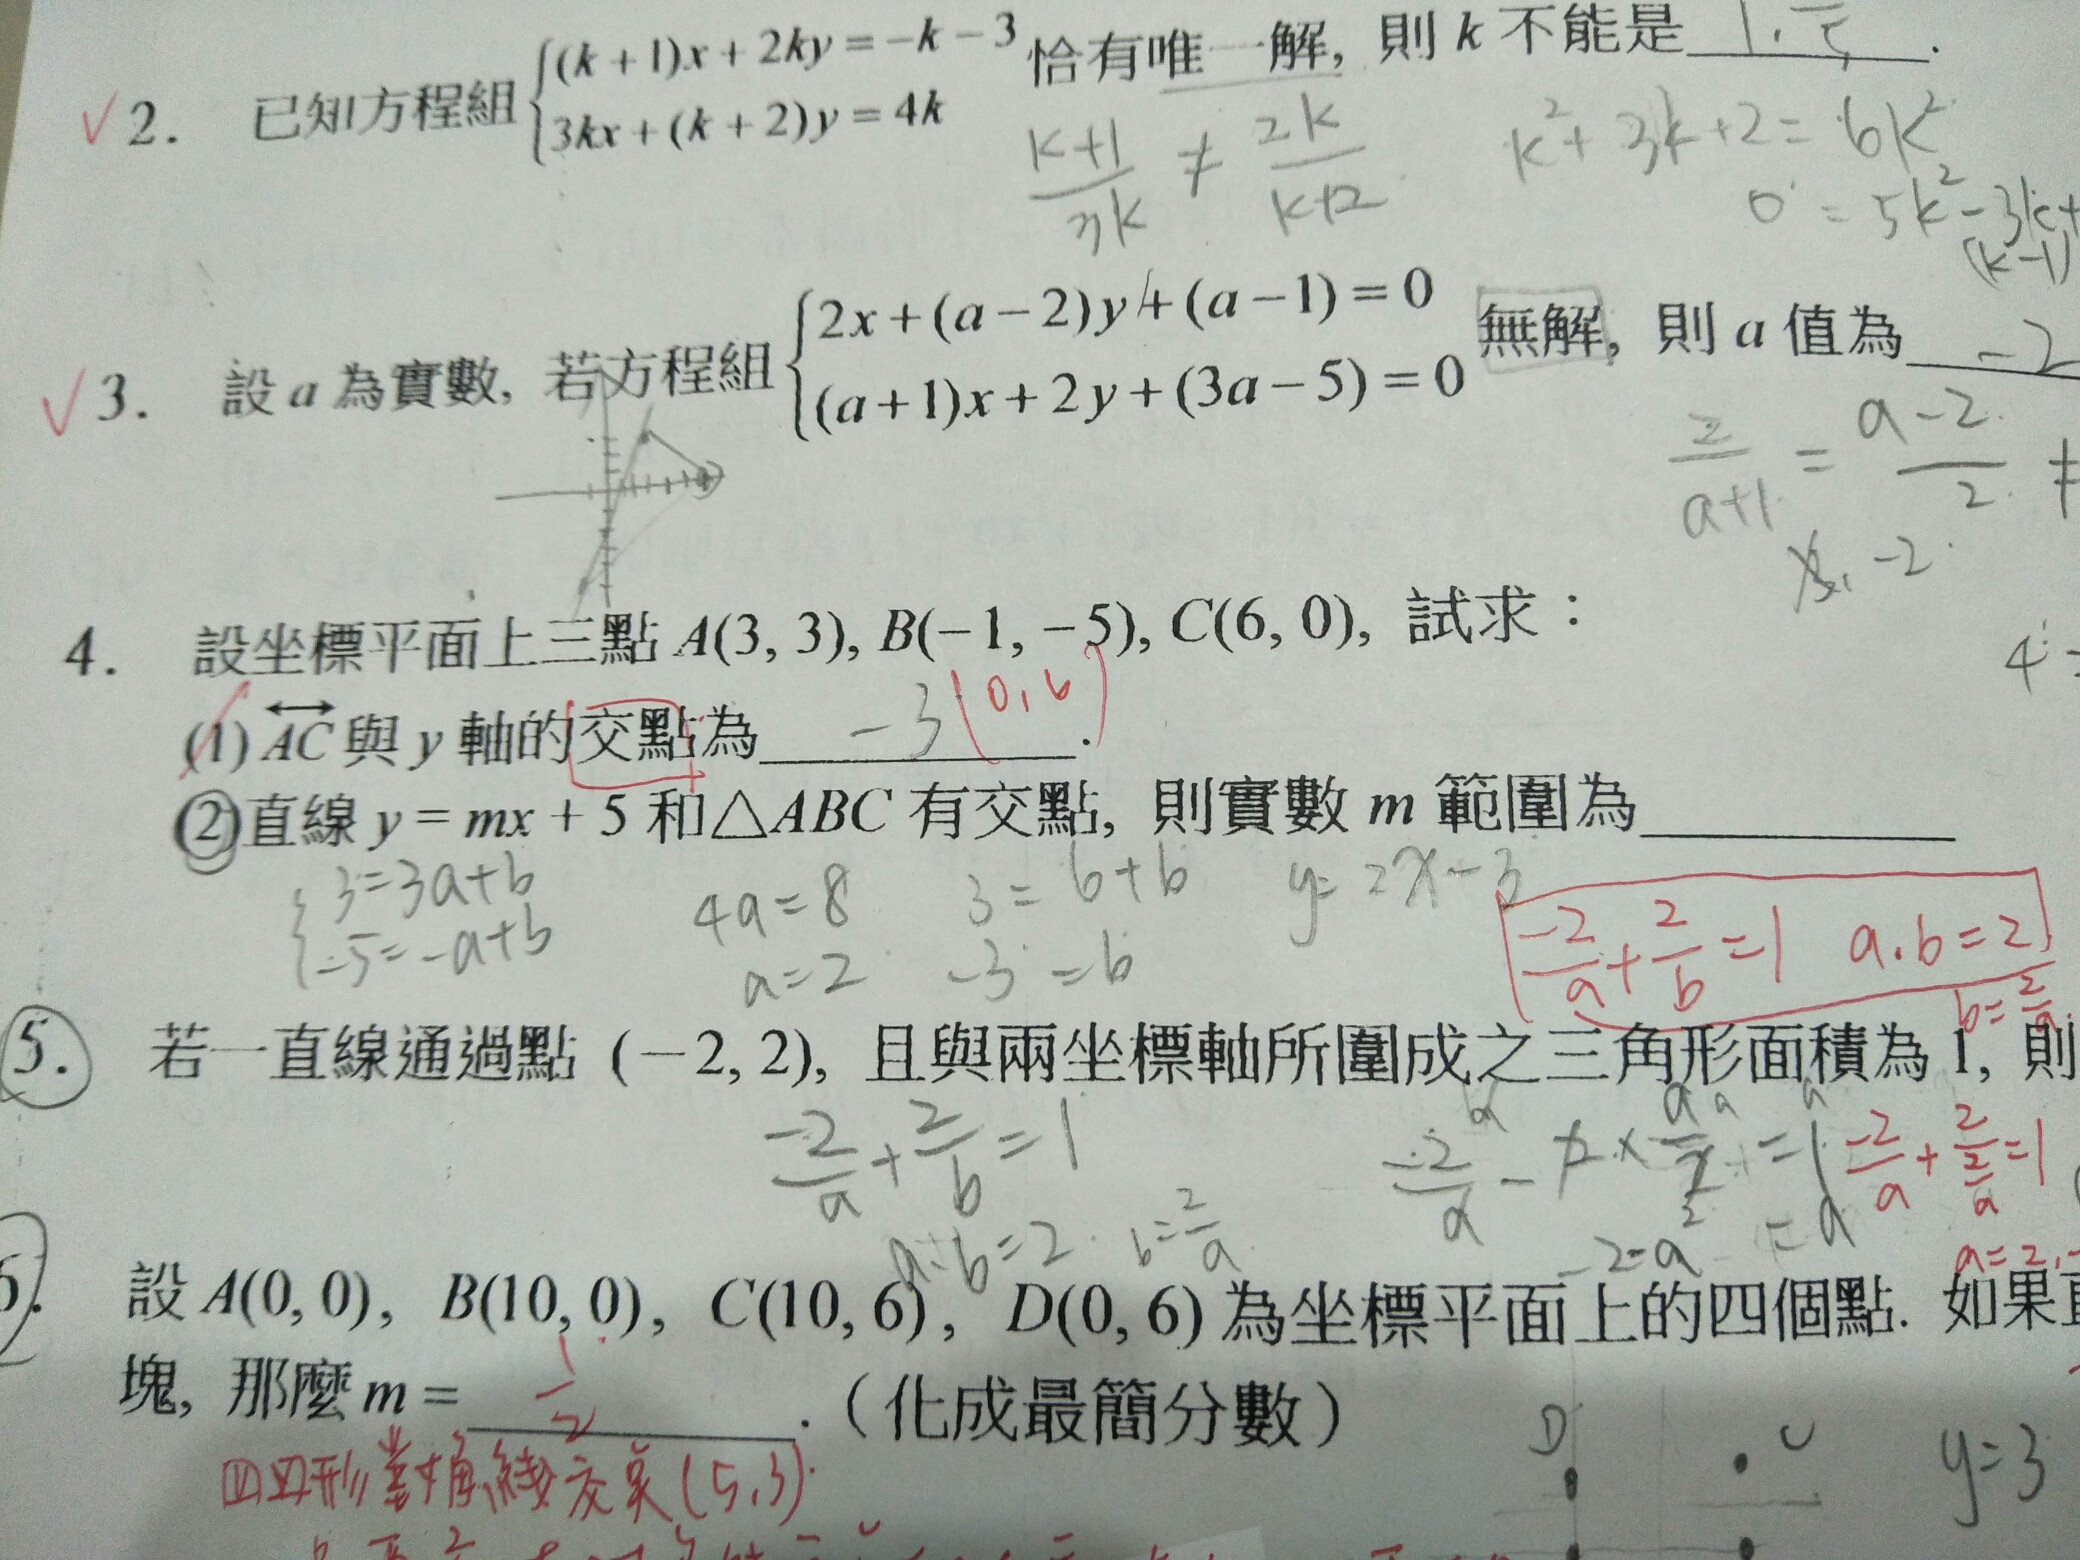 2. 已知方程組 { (k+1)x+2ky=-k-3 恰有唯一解, 則 k 不能是 1,
3kx+(k+2)y=4k
k+1/3k ≠ 2k/k+2 k²+3k+2=6k²
0=5k²-3k+
(k-1)
3. 設 a 為實數, 若方程組 { 2x+(a-2)y+(a-1)=0 無解, 則 a 值為 -2
(a+1)x+2y+(3a-5)=0
2/a+1 = a-2/2 ≠
3, -2
4. 設坐標平面上三點 A(3, 3), B(-1, -5), C(6, 0), 試求：
(1) AC 與 y 軸的交點為 -3 (0, 6).
(2) 直線 y = mx + 5 和△ABC 有交點, 則實數 m 範圍為
3=3a+b 4a=8 3=6+b y=2x-3
-5=-a+b a=2 -3=b
-2/a + 2/b = 1 a.b=2
b=2/a
5. 若一直線通過點 (-2, 2), 且與兩坐標軸所圍成之三角形面積為 1, 則
-2/a + 2/b = 1
-2/a + 2/(2/a) = 1
a·b=2 b=2/a -2=a
a=2,
6. 設 A(0, 0), B(10, 0), C(10, 6), D(0, 6) 為坐標平面上的四個點. 如果直
塊, 那麼 m = 1/2 .（化成最簡分數）
四邊形對角線交點(5,3)
D C y=3